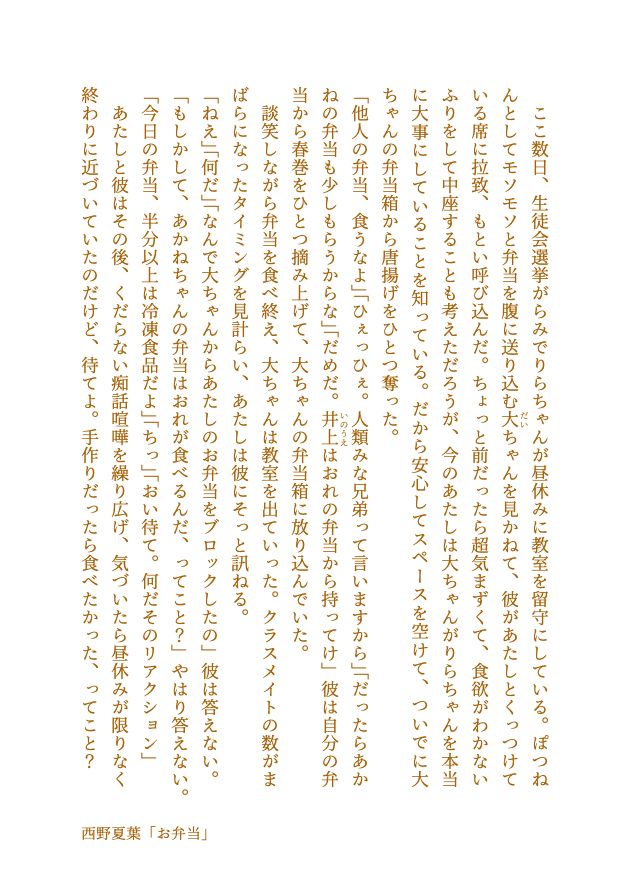 ここ数日、生徒会選挙がらみでりらちゃんが昼休みに教室を留守にしている。ぽつね
んとしてモソモソと弁当を腹に送り込む大ちゃんを見かねて、彼があたしとくっつけて
だい
いる席に拉致、もとい呼び込んだ。ちょっと前だったら超気まずくて、食欲がわかない
ふりをして中座することも考えただろうが、今のあたしは大ちゃんがりらちゃんを本当
に大事にしていることを知っている。だから安心してスペースを空けて、ついでに大
ちゃんの弁当箱から唐揚げをひとつ奪った。
「他人の弁当、食うなよ」「ひぇっひぇ。人類みな兄弟って言いますから」「だったらあか
ねの弁当も少しもらうからな」「だめだ。井上はおれの弁当から持ってけ」彼は自分の弁
いのうえ
当から春巻をひとつ摘み上げて、大ちゃんの弁当箱に放り込んでいた。
談笑しながら弁当を食べ終え、大ちゃんは教室を出ていった。クラスメイトの数がま
ばらになったタイミングを見計らい、あたしは彼にそっと訊ねる。
「ねえ」「何だ」「なんで大ちゃんからあたしのお弁当をブロックしたの」彼は答えない。
「もしかして、あかねちゃんの弁当はおれが食べるんだ、ってこと？」やはり答えない。
「今日の弁当、半分以上は冷凍食品だよ」「ちっ」「おい待て。何だそのリアクション」
あたしと彼はその後、くだらない痴話喧嘩を繰り広げ、気づいたら昼休みが限りなく
終わりに近づいていたのだけど、待てよ。手作りだったら食べたかった、ってこと？
西野夏葉「お弁当」